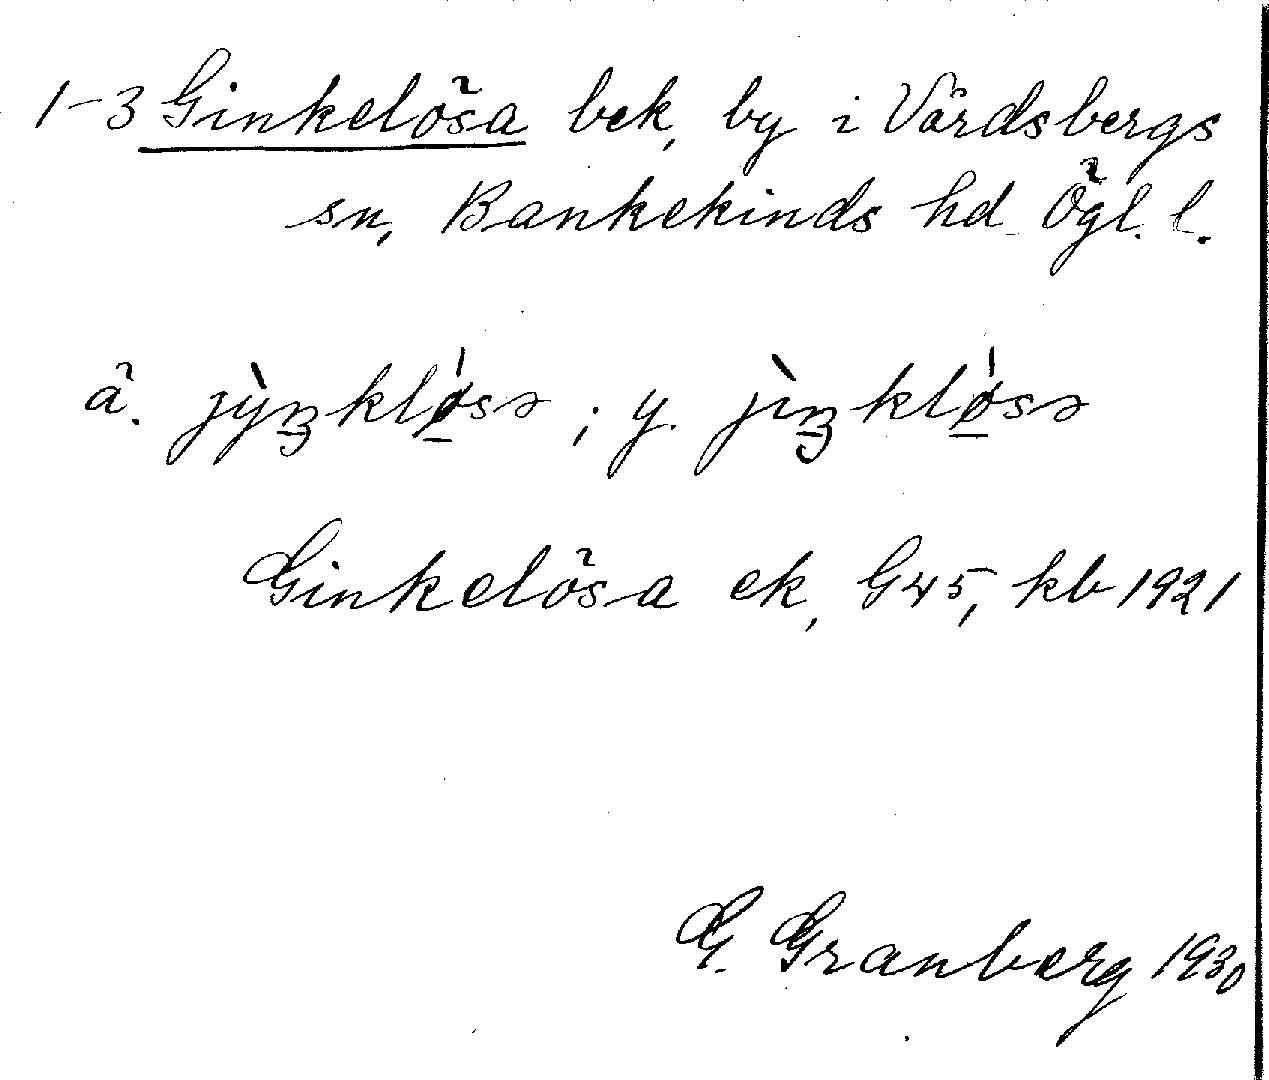 1-3 Ginkelösa bek, by i Vårdsbergs
sn, Bankekinds hd Ögl. l.
ä. jỳŋklǿ̱sə ; y. jìŋklǿ̱sə
Ginkelösa ek, G45, kb 1921
G. Granberg 1930